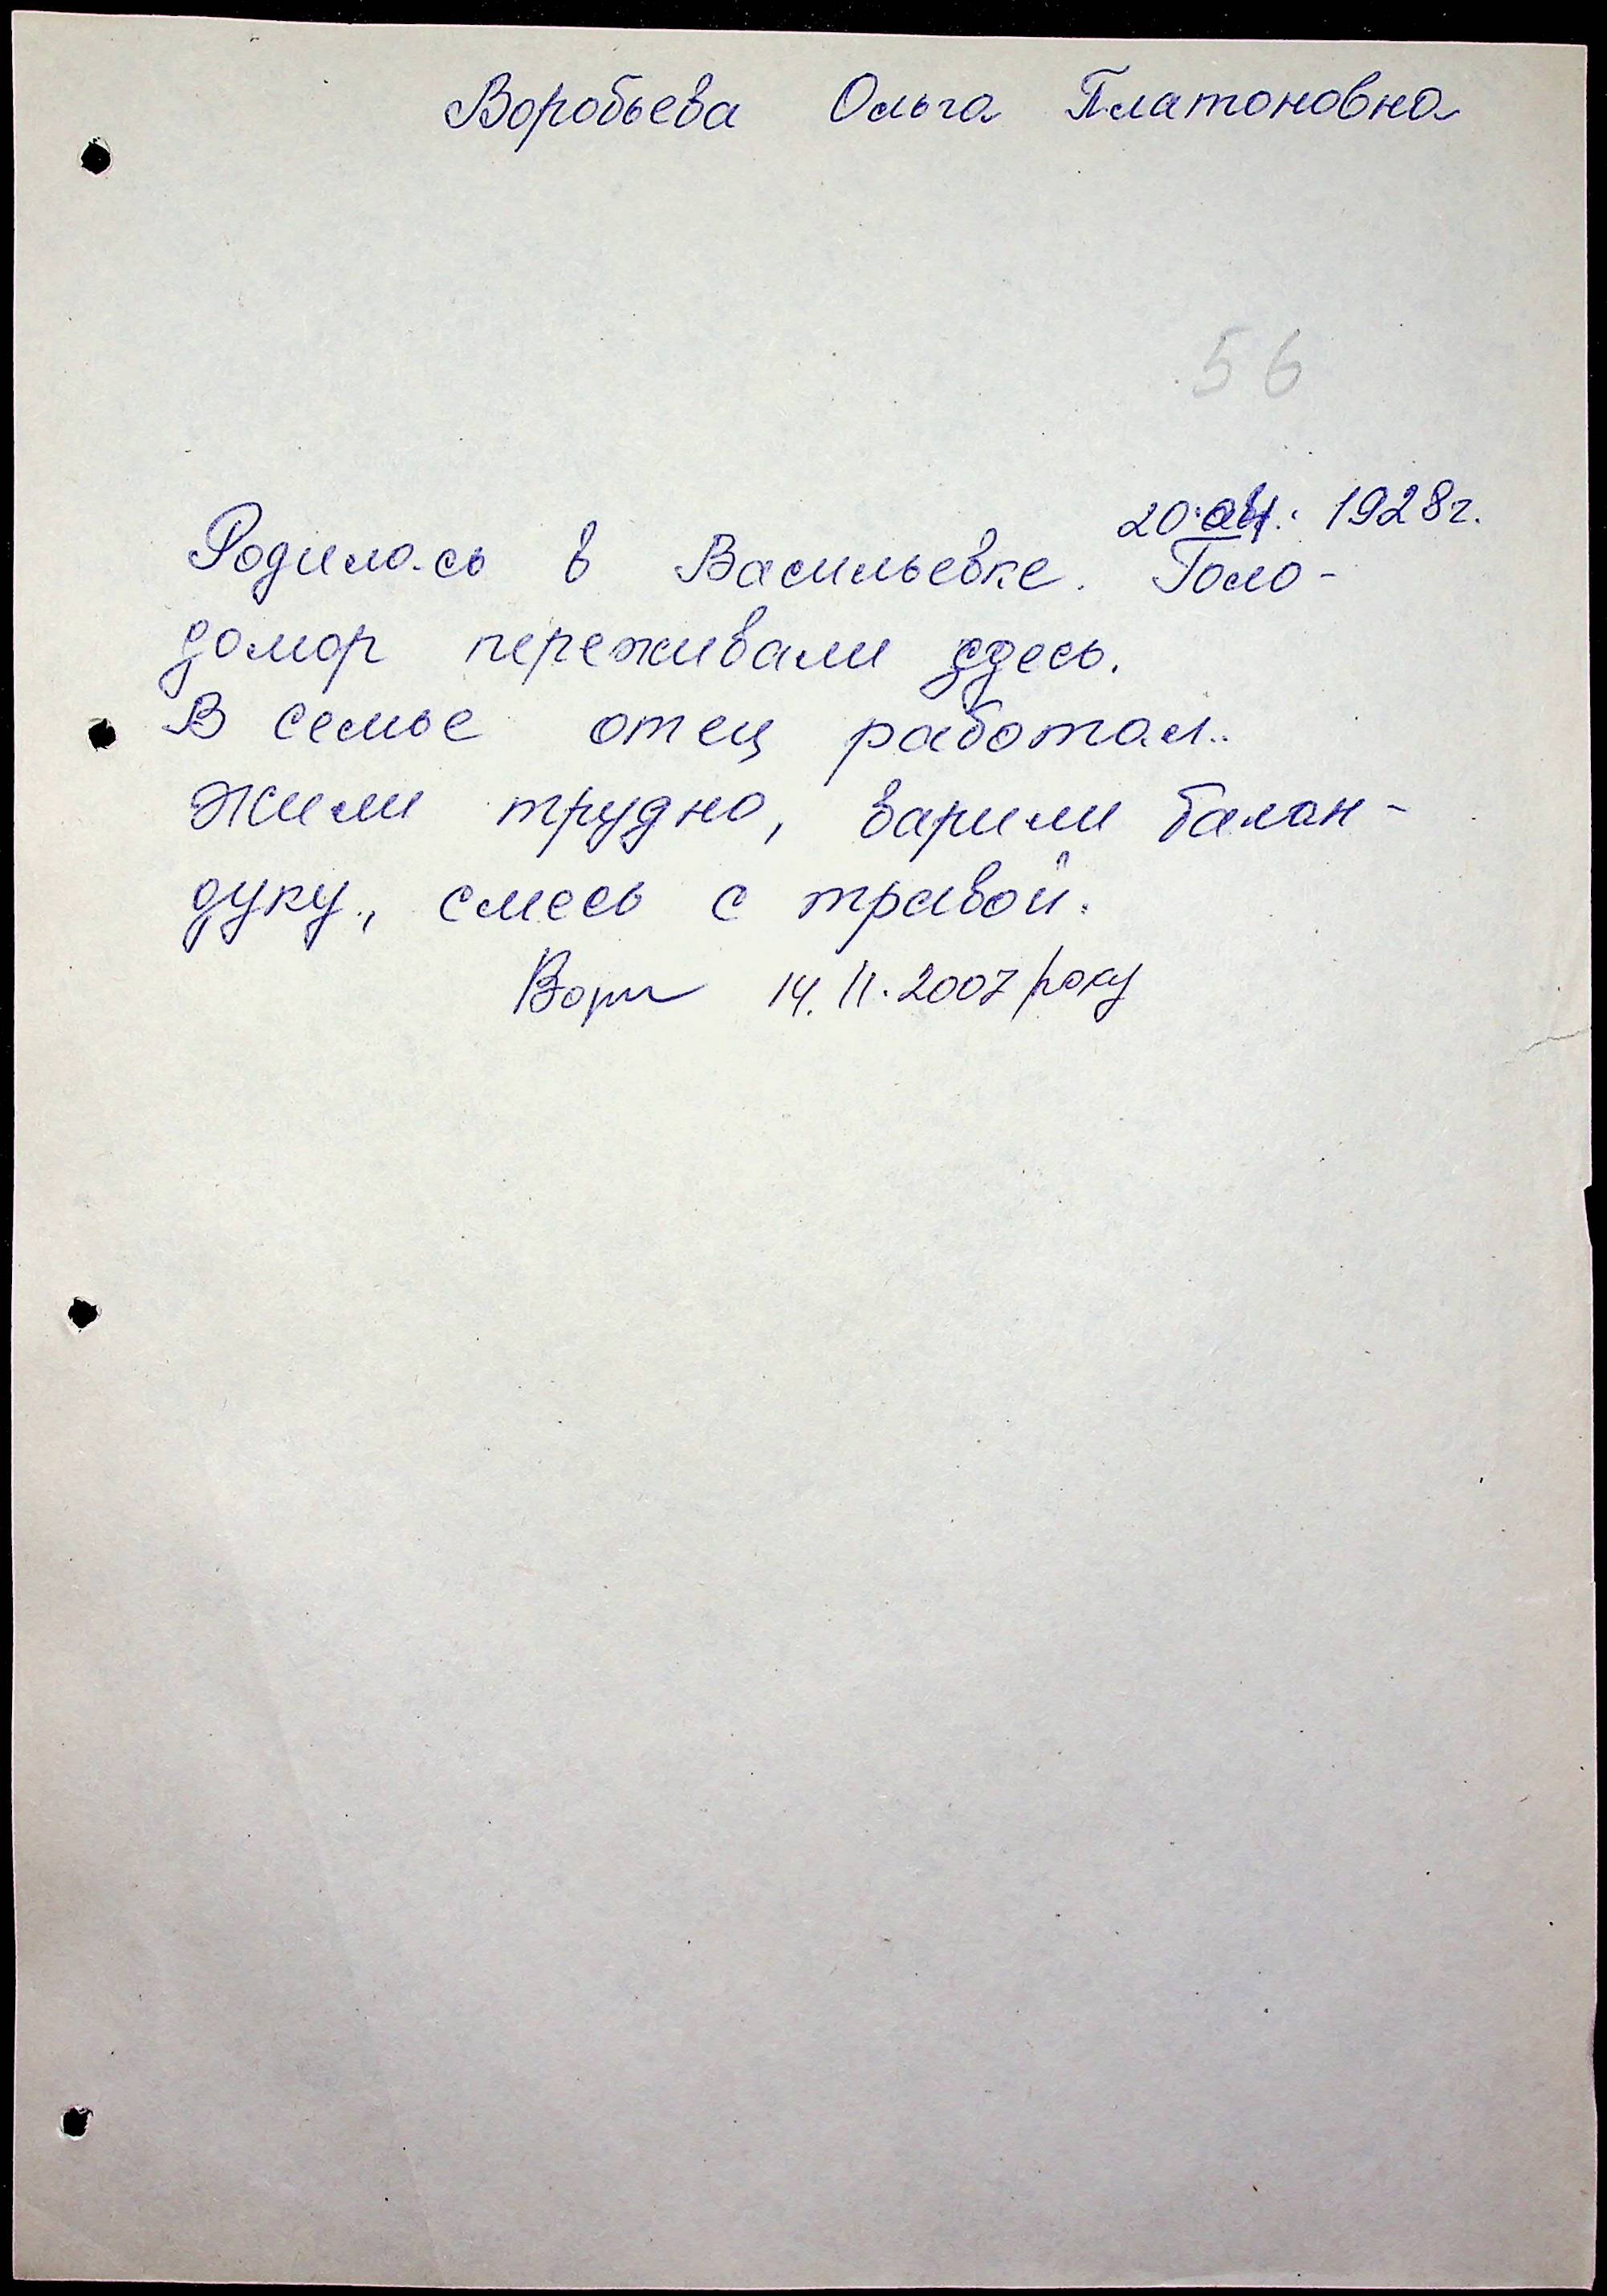 Воробьева Ольга Платоновна
56
20. 1928г.
Родилась в Васильевке. Голо-
домор переживали здесь.
В семье отец работал.
Жили трудно, варили балан-
дуку, смесь с травой.
14.11.2007 року